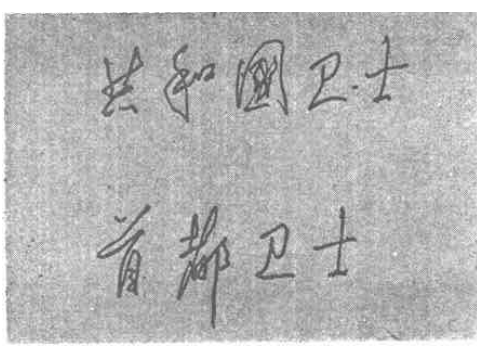 共和國卫士
首都卫士